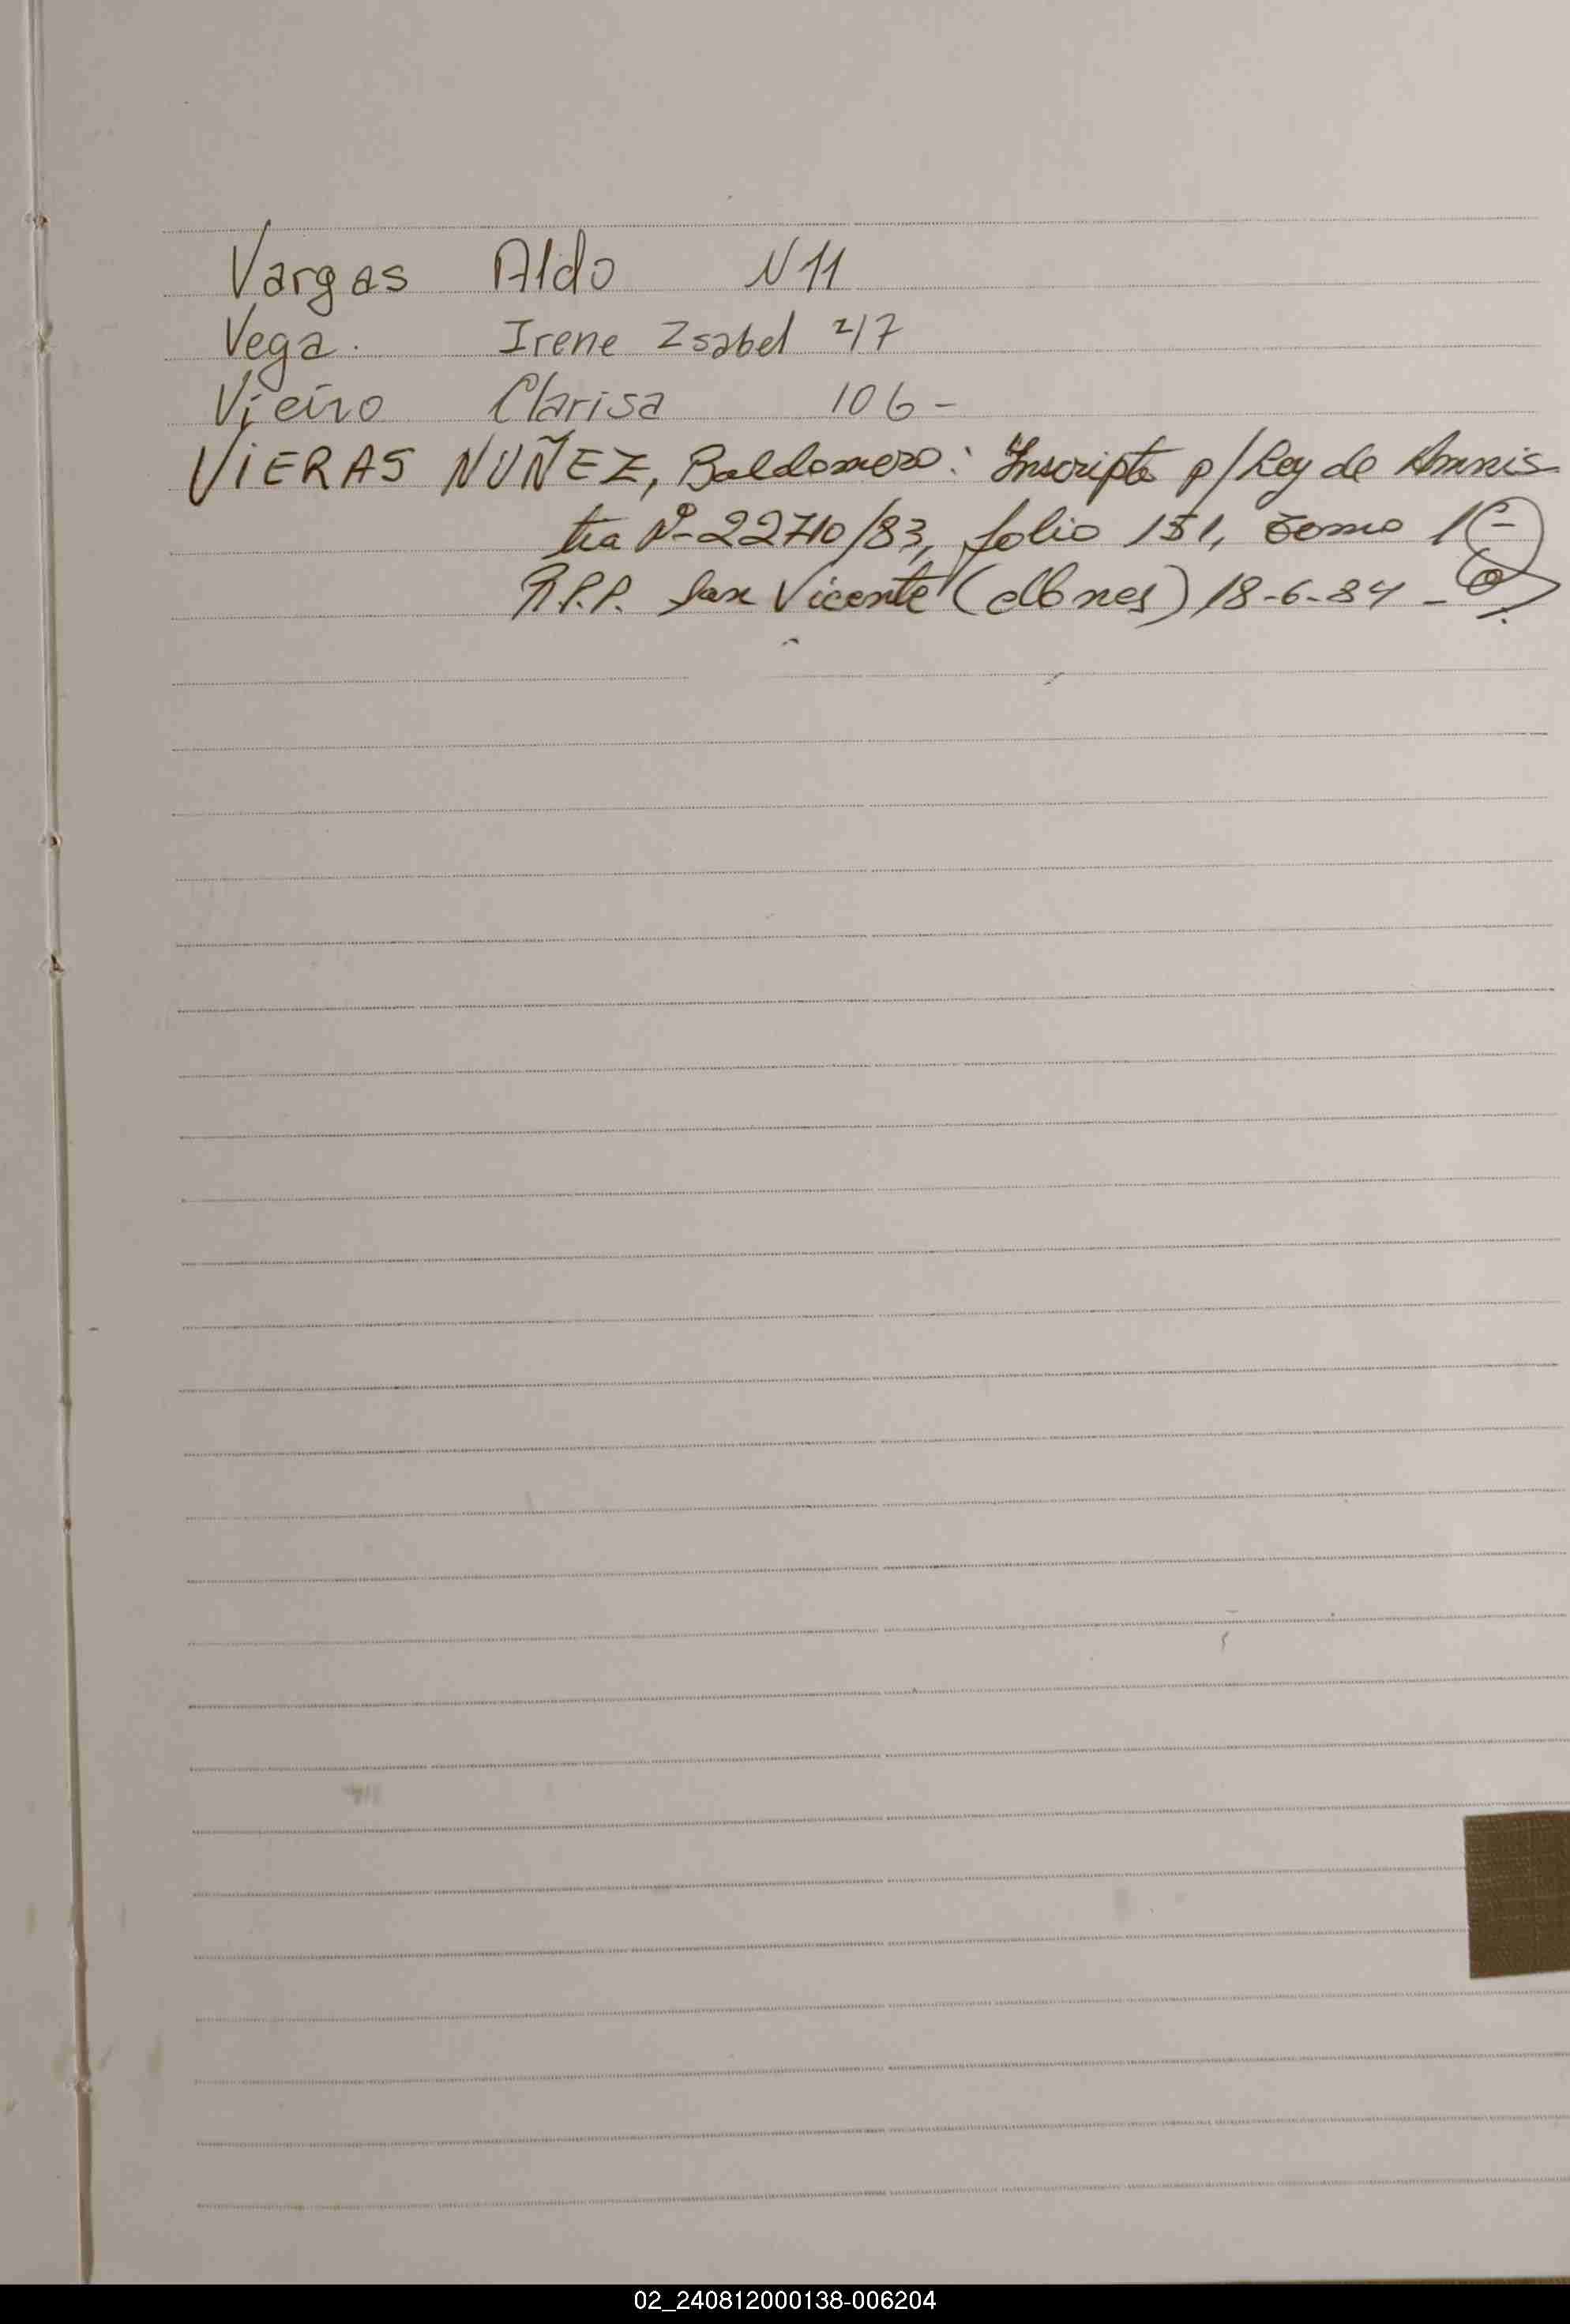 Vargas Aldo N 11
Vega. Irene Isabel 217
Vieiro Clarisa 106-
VIERAS NUÑEZ, Baldomero: Inscripto p/Ley de Amnis
tia Nº-22710/83, folio 151, tomo 1º-
R.P.P. San Vicente (Mnes) 18-6-84 -
02_240812000138-006204